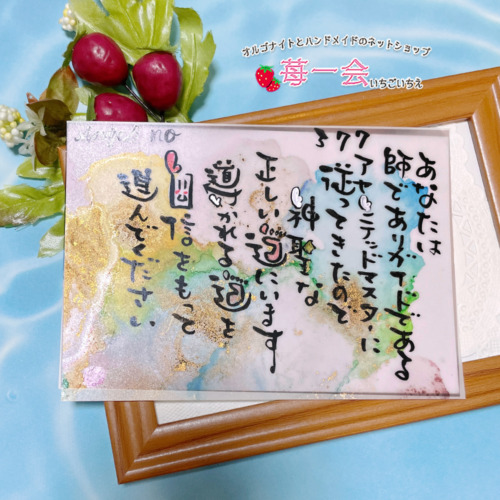 オルゴナイトとハンドメイドのネットショップ
苺一会
いちごいちえ
Angel no
377
あなたは
師でありガイドである
アセンデッドマスターに
従ってきたので
神聖な
正しい道にいます
導かれる道を
自信をもって
進んでください